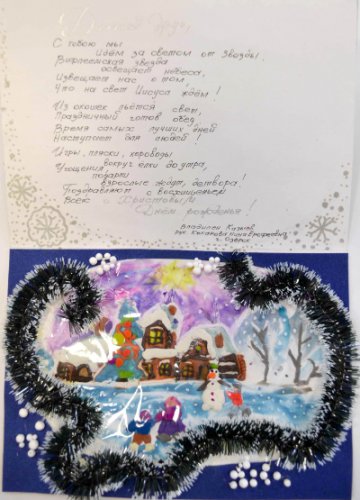 С тобою мы
идём за светом от звезды.
Вифлеемская звезда
освещает небеса,
Извещает нас о том,
Что на свет Иисуса ждём!
Из окошек льётся свет,
Праздничный готов обед,
Время самых лучших дней
Наступает для людей!
Игры, пляски, хороводы
вокруг ёлки до утра,
Угощения, подарки
взрослые ждут, детвора!
Поздравляют с восхищеньем
Всех с Христовым
Днём рожденья!
Владилен
г. Озёрск